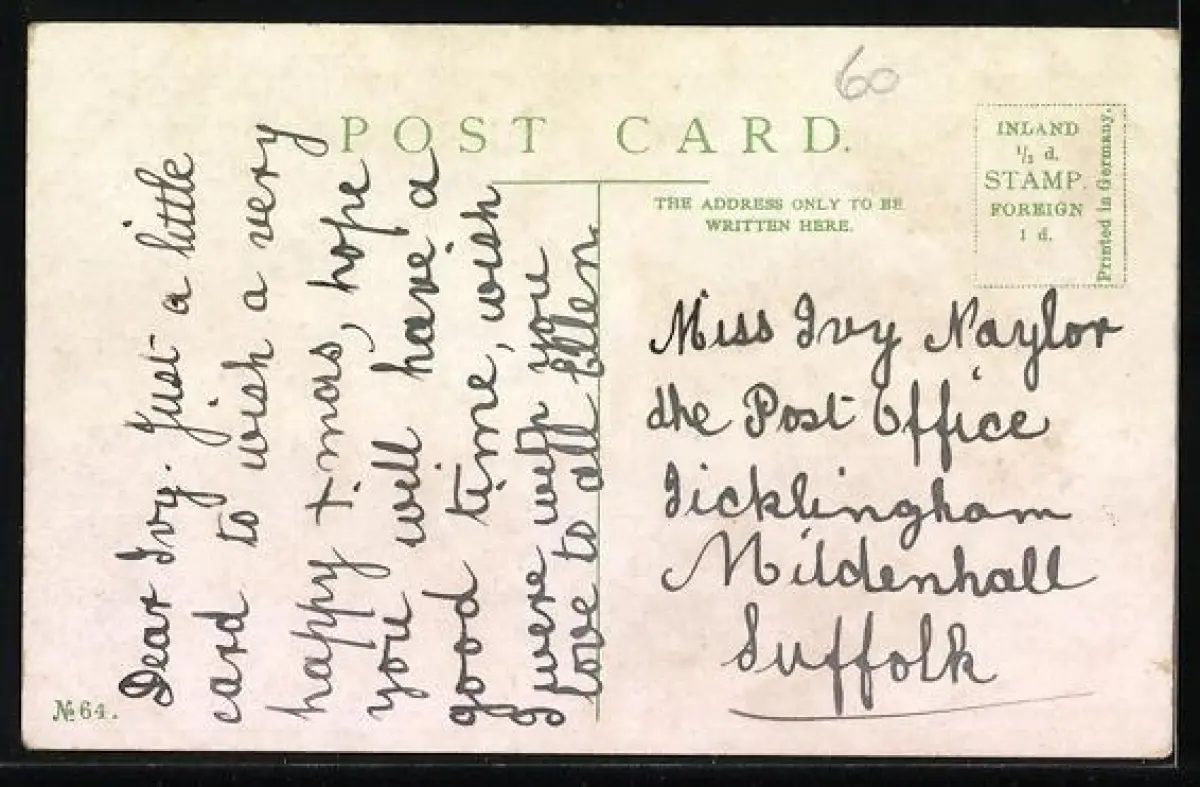 60
POST CARD.
THE ADDRESS ONLY TO BE
WRITTEN HERE.
INLAND
½ d.
STAMP.
FOREIGN
1 d.
Printed in Germany.
Dear Ivy. Just a little
card to wish a very
happy +mas, hope
you will have a
good time, wish
I were with you
love to all Ellen.
Miss Ivy Naylor
the Post Office
Icklingham
Mildenhall
Suffolk
№ 64.